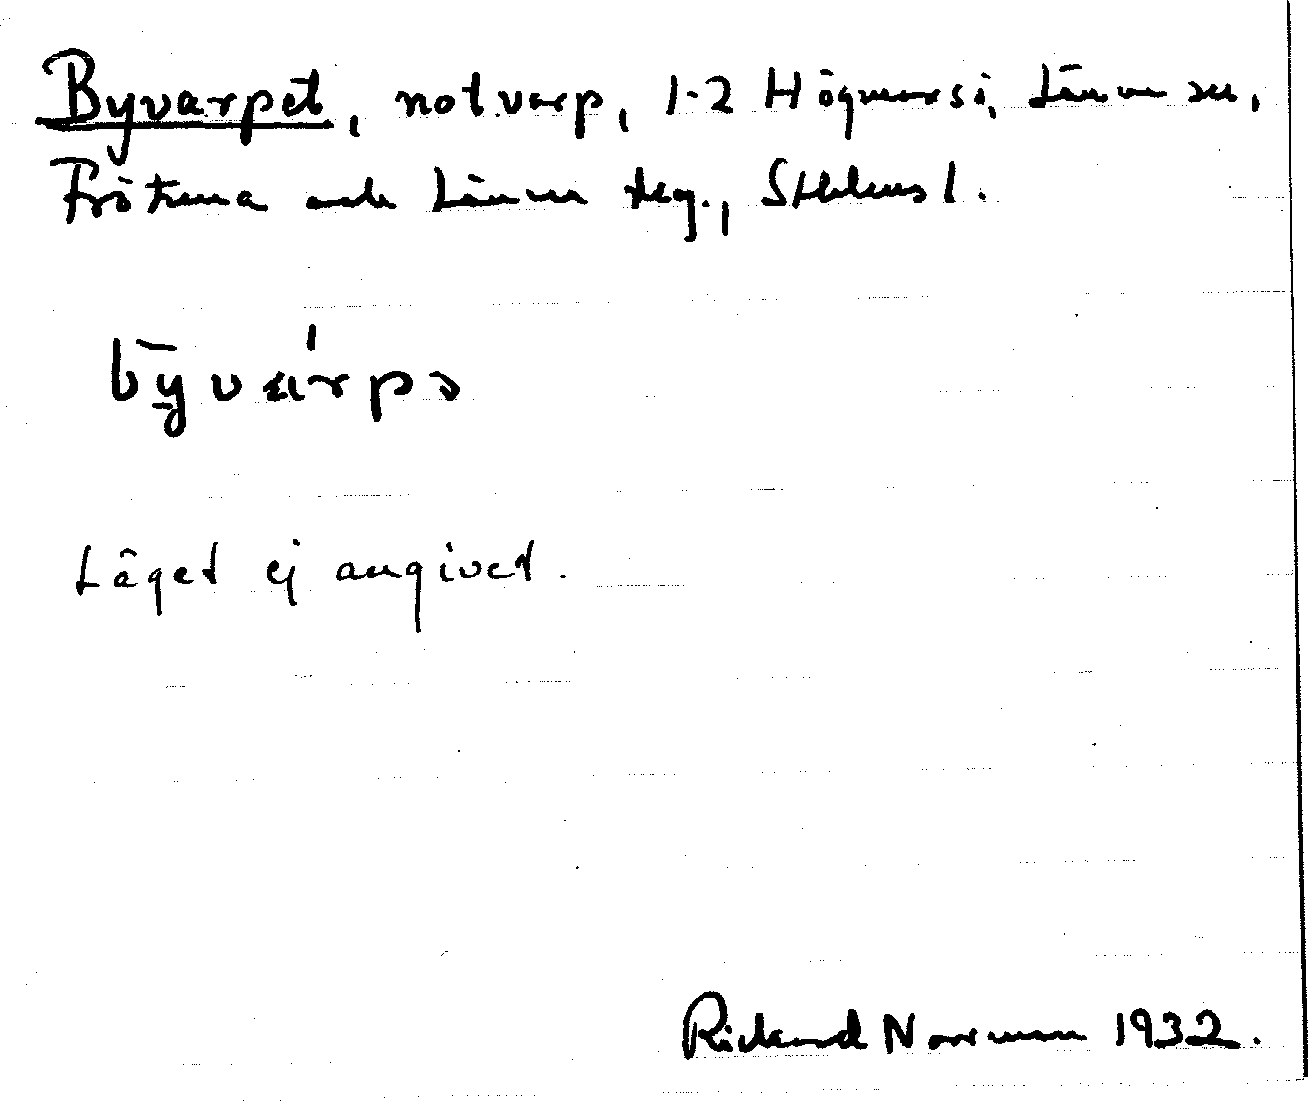 Byvarpet, notvarp, 1-2 Högmarsö, Länna sn,
Frötuna och Länna skg., Sthlms l.
bȳvárpə
Läget ej angivet.
Rickard Norrman 1932.